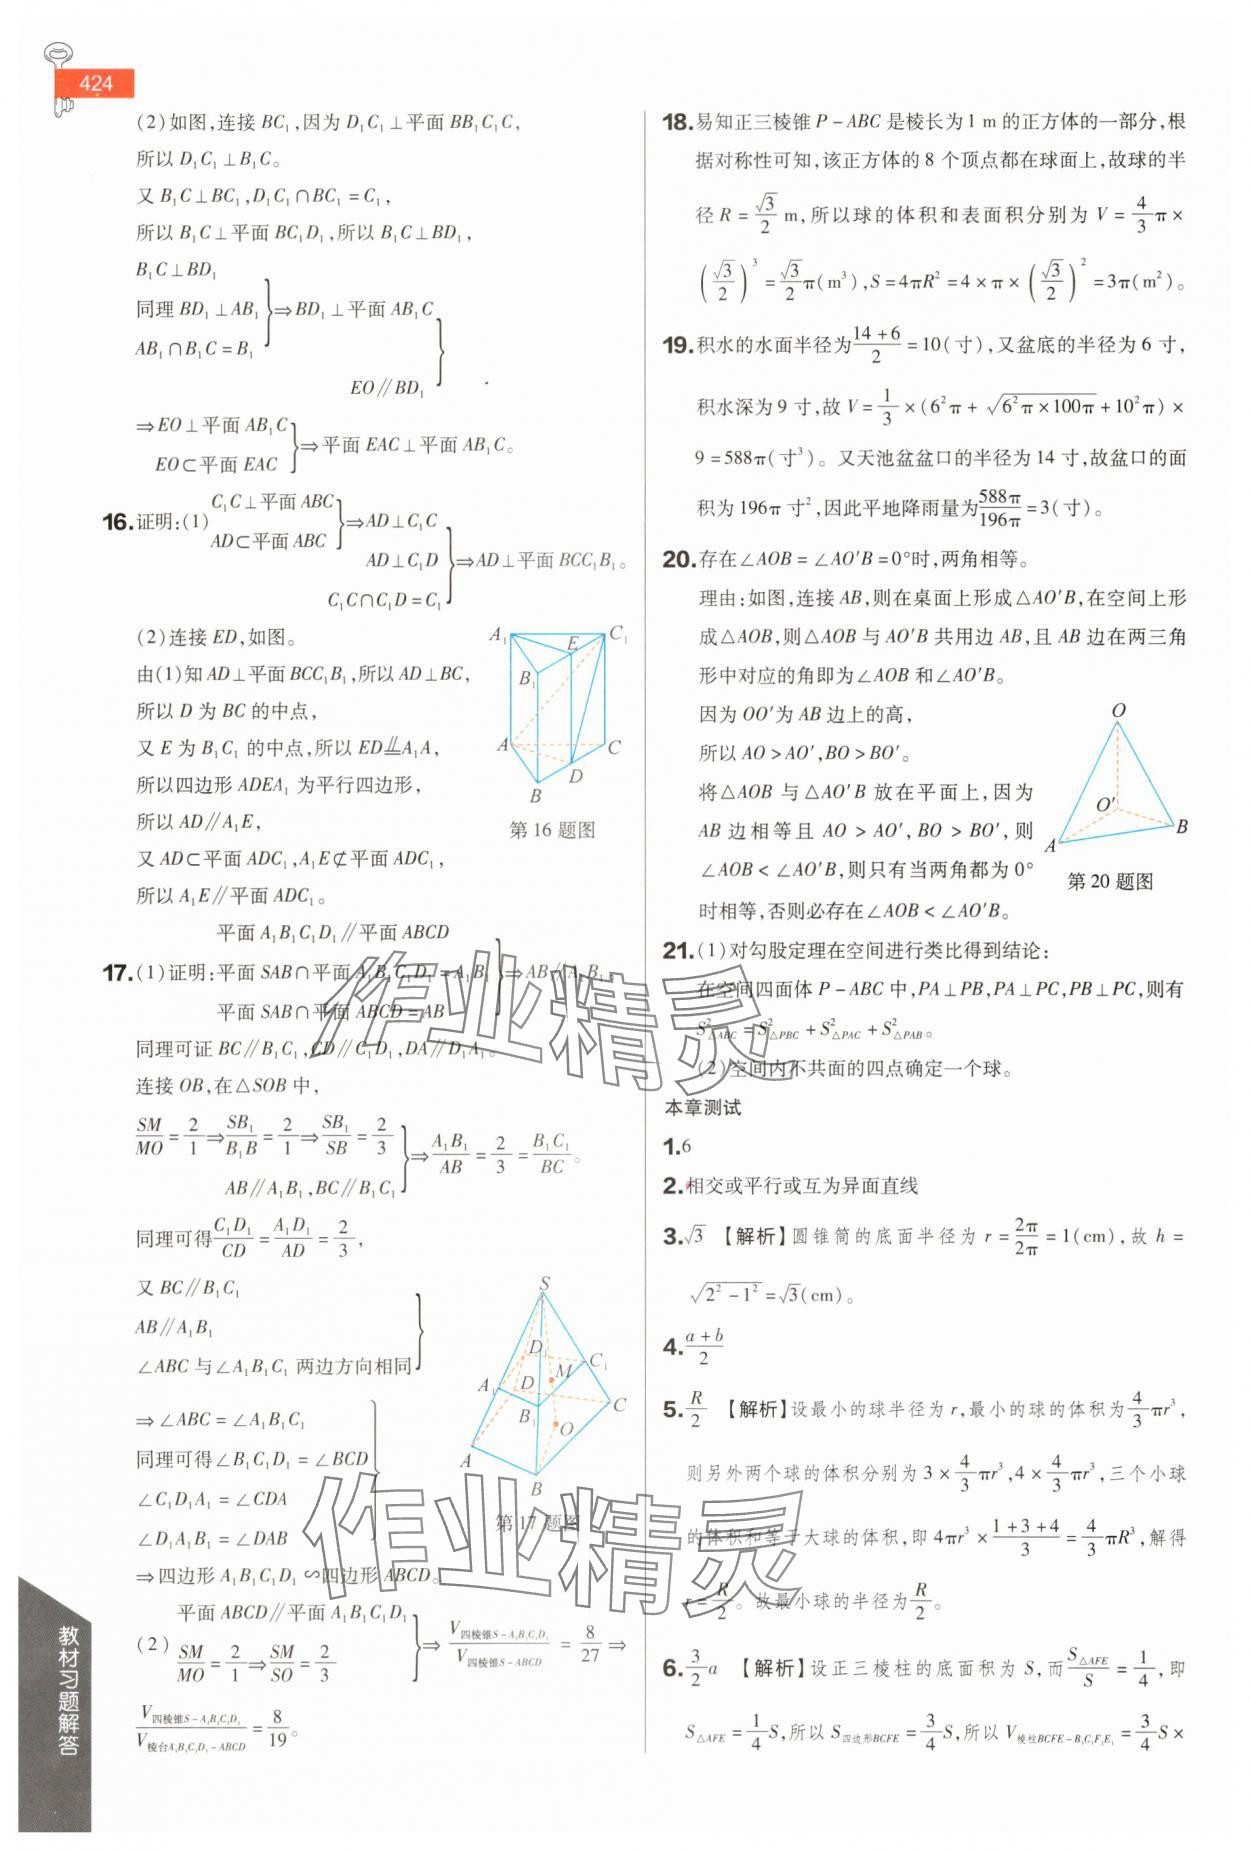 424
(2)如图,连接 BC₁,因为 D₁C₁⊥平面 BB₁C₁C,
所以 D₁C₁⊥B₁C。
又 B₁C⊥BC₁,D₁C₁∩BC₁=C₁,
所以 B₁C⊥平面 BC₁D₁,所以 B₁C⊥BD₁,
B₁C⊥BD₁
同理 BD₁⊥AB₁}⇒BD₁⊥平面 AB₁C
AB₁∩B₁C=B₁
EO∥BD₁}
⇒EO⊥平面 AB₁C
EO⊂平面 EAC}⇒平面 EAC⊥平面 AB₁C。
16.证明:(1) C₁C⊥平面 ABC
AD⊂平面 ABC}⇒AD⊥C₁C
AD⊥C₁D}⇒AD⊥平面 BCC₁B₁。
C₁C∩C₁D=C₁
(2)连接 ED,如图。
由(1)知 AD⊥平面 BCC₁B₁,所以 AD⊥BC,
所以 D 为 BC 的中点,
又 E 为 B₁C₁ 的中点,所以 ED⫽A₁A,
所以四边形 ADEA₁ 为平行四边形,
所以 AD∥A₁E,
又 AD⊂平面 ADC₁,A₁E⊄平面 ADC₁,
所以 A₁E∥平面 ADC₁。
A₁ C₁ E B₁ A C D B
第 16 题图
平面 A₁B₁C₁D₁∥平面 ABCD
17.(1)证明:平面 SAB∩平面 A₁B₁C₁D₁=A₁B₁}⇒AB∥A₁B₁,
平面 SAB∩平面 ABCD=AB
同理可证 BC∥B₁C₁,CD∥C₁D₁,DA∥D₁A₁。
连接 OB,在△SOB 中,
SM/MO=2/1⇒SB₁/B₁B=2/1⇒SB₁/SB=2/3
AB∥A₁B₁,BC∥B₁C₁}⇒A₁B₁/AB=2/3=B₁C₁/BC。
同理可得C₁D₁/CD=A₁D₁/AD=2/3,
又 BC∥B₁C₁
AB∥A₁B₁
∠ABC 与∠A₁B₁C₁ 两边方向相同}
⇒∠ABC=∠A₁B₁C₁
同理可得∠B₁C₁D₁=∠BCD
∠C₁D₁A₁=∠CDA
∠D₁A₁B₁=∠DAB
⇒四边形 A₁B₁C₁D₁∽四边形 ABCD。
S D₁ C₁ M A₁ D B₁ C O A B
第 17 题图
平面 ABCD∥平面 A₁B₁C₁D₁
(2) SM/MO=2/1⇒SM/SO=2/3}⇒V四棱锥S-A₁B₁C₁D₁/V四棱锥S-ABCD=8/27⇒
V四棱锥S-A₁B₁C₁D₁/V棱台A₁B₁C₁D₁-ABCD=8/19。
18.易知正三棱锥 P-ABC 是棱长为 1 m 的正方体的一部分,根
据对称性可知,该正方体的 8 个顶点都在球面上,故球的半
径 R=√3/2 m,所以球的体积和表面积分别为 V=4/3π×
(√3/2)³=√3/2π(m³),S=4πR²=4×π×(√3/2)²=3π(m²)。
19.积水的水面半径为(14+6)/2=10(寸),又盆底的半径为 6 寸,
积水深为 9 寸,故 V=1/3×(6²π+√(6²π×100π)+10²π)×
9=588π(寸³)。又天池盆盆口的半径为 14 寸,故盆口的面
积为 196π 寸²,因此平地降雨量为588π/196π=3(寸)。
20.存在∠AOB=∠AO′B=0°时,两角相等。
理由:如图,连接 AB,则在桌面上形成△AO′B,在空间上形
成△AOB,则△AOB 与 AO′B 共用边 AB,且 AB 边在两三角
形中对应的角即为∠AOB 和∠AO′B。
因为 OO′为 AB 边上的高,
所以 AO>AO′,BO>BO′。
将△AOB 与△AO′B 放在平面上,因为
AB 边相等且 AO>AO′,BO>BO′,则
∠AOB<∠AO′B,则只有当两角都为 0°
时相等,否则必存在∠AOB<∠AO′B。
O O′ A B
第 20 题图
21.(1)对勾股定理在空间进行类比得到结论:
在空间四面体 P-ABC 中,PA⊥PB,PA⊥PC,PB⊥PC,则有
S²△ABC=S²△PBC+S²△PAC+S²△PAB。
(2)空间内不共面的四点确定一个球。
本章测试
1.6
2.相交或平行或互为异面直线
3.√3 【解析】圆锥筒的底面半径为 r=2π/2π=1(cm),故 h=
√(2²-1²)=√3(cm)。
4.(a+b)/2
5.R/2 【解析】设最小的球半径为 r,最小的球的体积为4/3πr³,
则另外两个球的体积分别为 3×4/3πr³,4×4/3πr³,三个小球
的体积和等于大球的体积,即 4πr³×(1+3+4)/3=4/3πR³,解得
r=R/2。故最小球的半径为R/2。
6.3/2a 【解析】设正三棱柱的底面积为 S,而S△AFE/S=1/4,即
S△AFE=1/4S,所以 S四边形BCFE=3/4S,所以 V棱柱BCFE-B₁C₁F₁E₁=3/4S×
教材习题解答
作业精灵
作业精灵